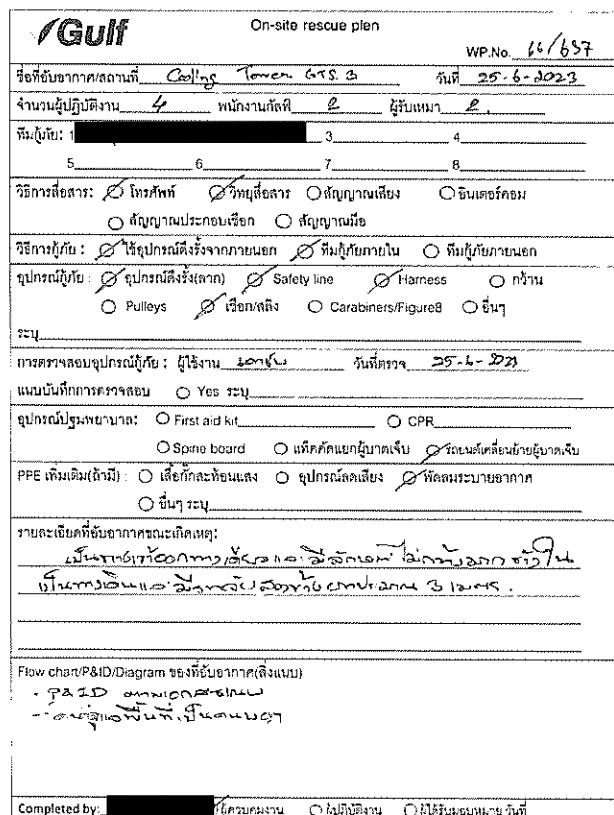 Gulf
On-site rescue plan
WP.No. 66/637
ชื่อที่อับอากาศ/สถานที่ Cooling Tower GTS. 3 วันที่ 25-6-2023
จำนวนผู้ปฏิบัติงาน 4 พนักงานกัลฟ์ 2 ผู้รับเหมา 2
ทีมกู้ภัย: 1 3 4
5 6 7 8
วิธีการสื่อสาร: โทรศัพท์ วิทยุสื่อสาร สัญญาณเสียง อินเตอร์คอม
สัญญาณประกอบเชือก สัญญาณมือ
วิธีการกู้ภัย : ใช้อุปกรณ์ดึงรั้งจากภายนอก ทีมกู้ภัยภายใน ทีมกู้ภัยภายนอก
อุปกรณ์กู้ภัย : อุปกรณ์ดึงรั้ง(ลาก) Safety line Harness กว้าน
Pulleys เชือก/สลิง Carabiners/Figure8 อื่นๆ
ระบุ
การตรวจสอบอุปกรณ์กู้ภัย : ผู้ใช้งาน วันที่ตรวจ 25-6-2023
แบบบันทึกการตรวจสอบ Yes ระบุ
อุปกรณ์ปฐมพยาบาล: First aid kit CPR
Spine board แท็คคัดแยกผู้บาดเจ็บ รถยนต์เคลื่อนย้ายผู้บาดเจ็บ
PPE เพิ่มเติม(ถ้ามี) : เสื้อกั๊กสะท้อนแสง อุปกรณ์ลดเสียง พัดลมระบายอากาศ
อื่นๆ ระบุ
รายละเอียดที่อับอากาศขณะเกิดเหตุ:
เป็นทางเข้าออกทางเดียวและมีลักษณะไม่กว้างมาก ข้างใน
เป็นทางเดินและ 3 เมตร.
Flow chart/P&ID/Diagram ของที่อับอากาศ(สิ่งแนบ)
- P&ID ตามเอกสารแนบ
Completed by: ผู้ควบคุมงาน ผู้ปฏิบัติงาน ผู้ได้รับมอบหมาย วันที่